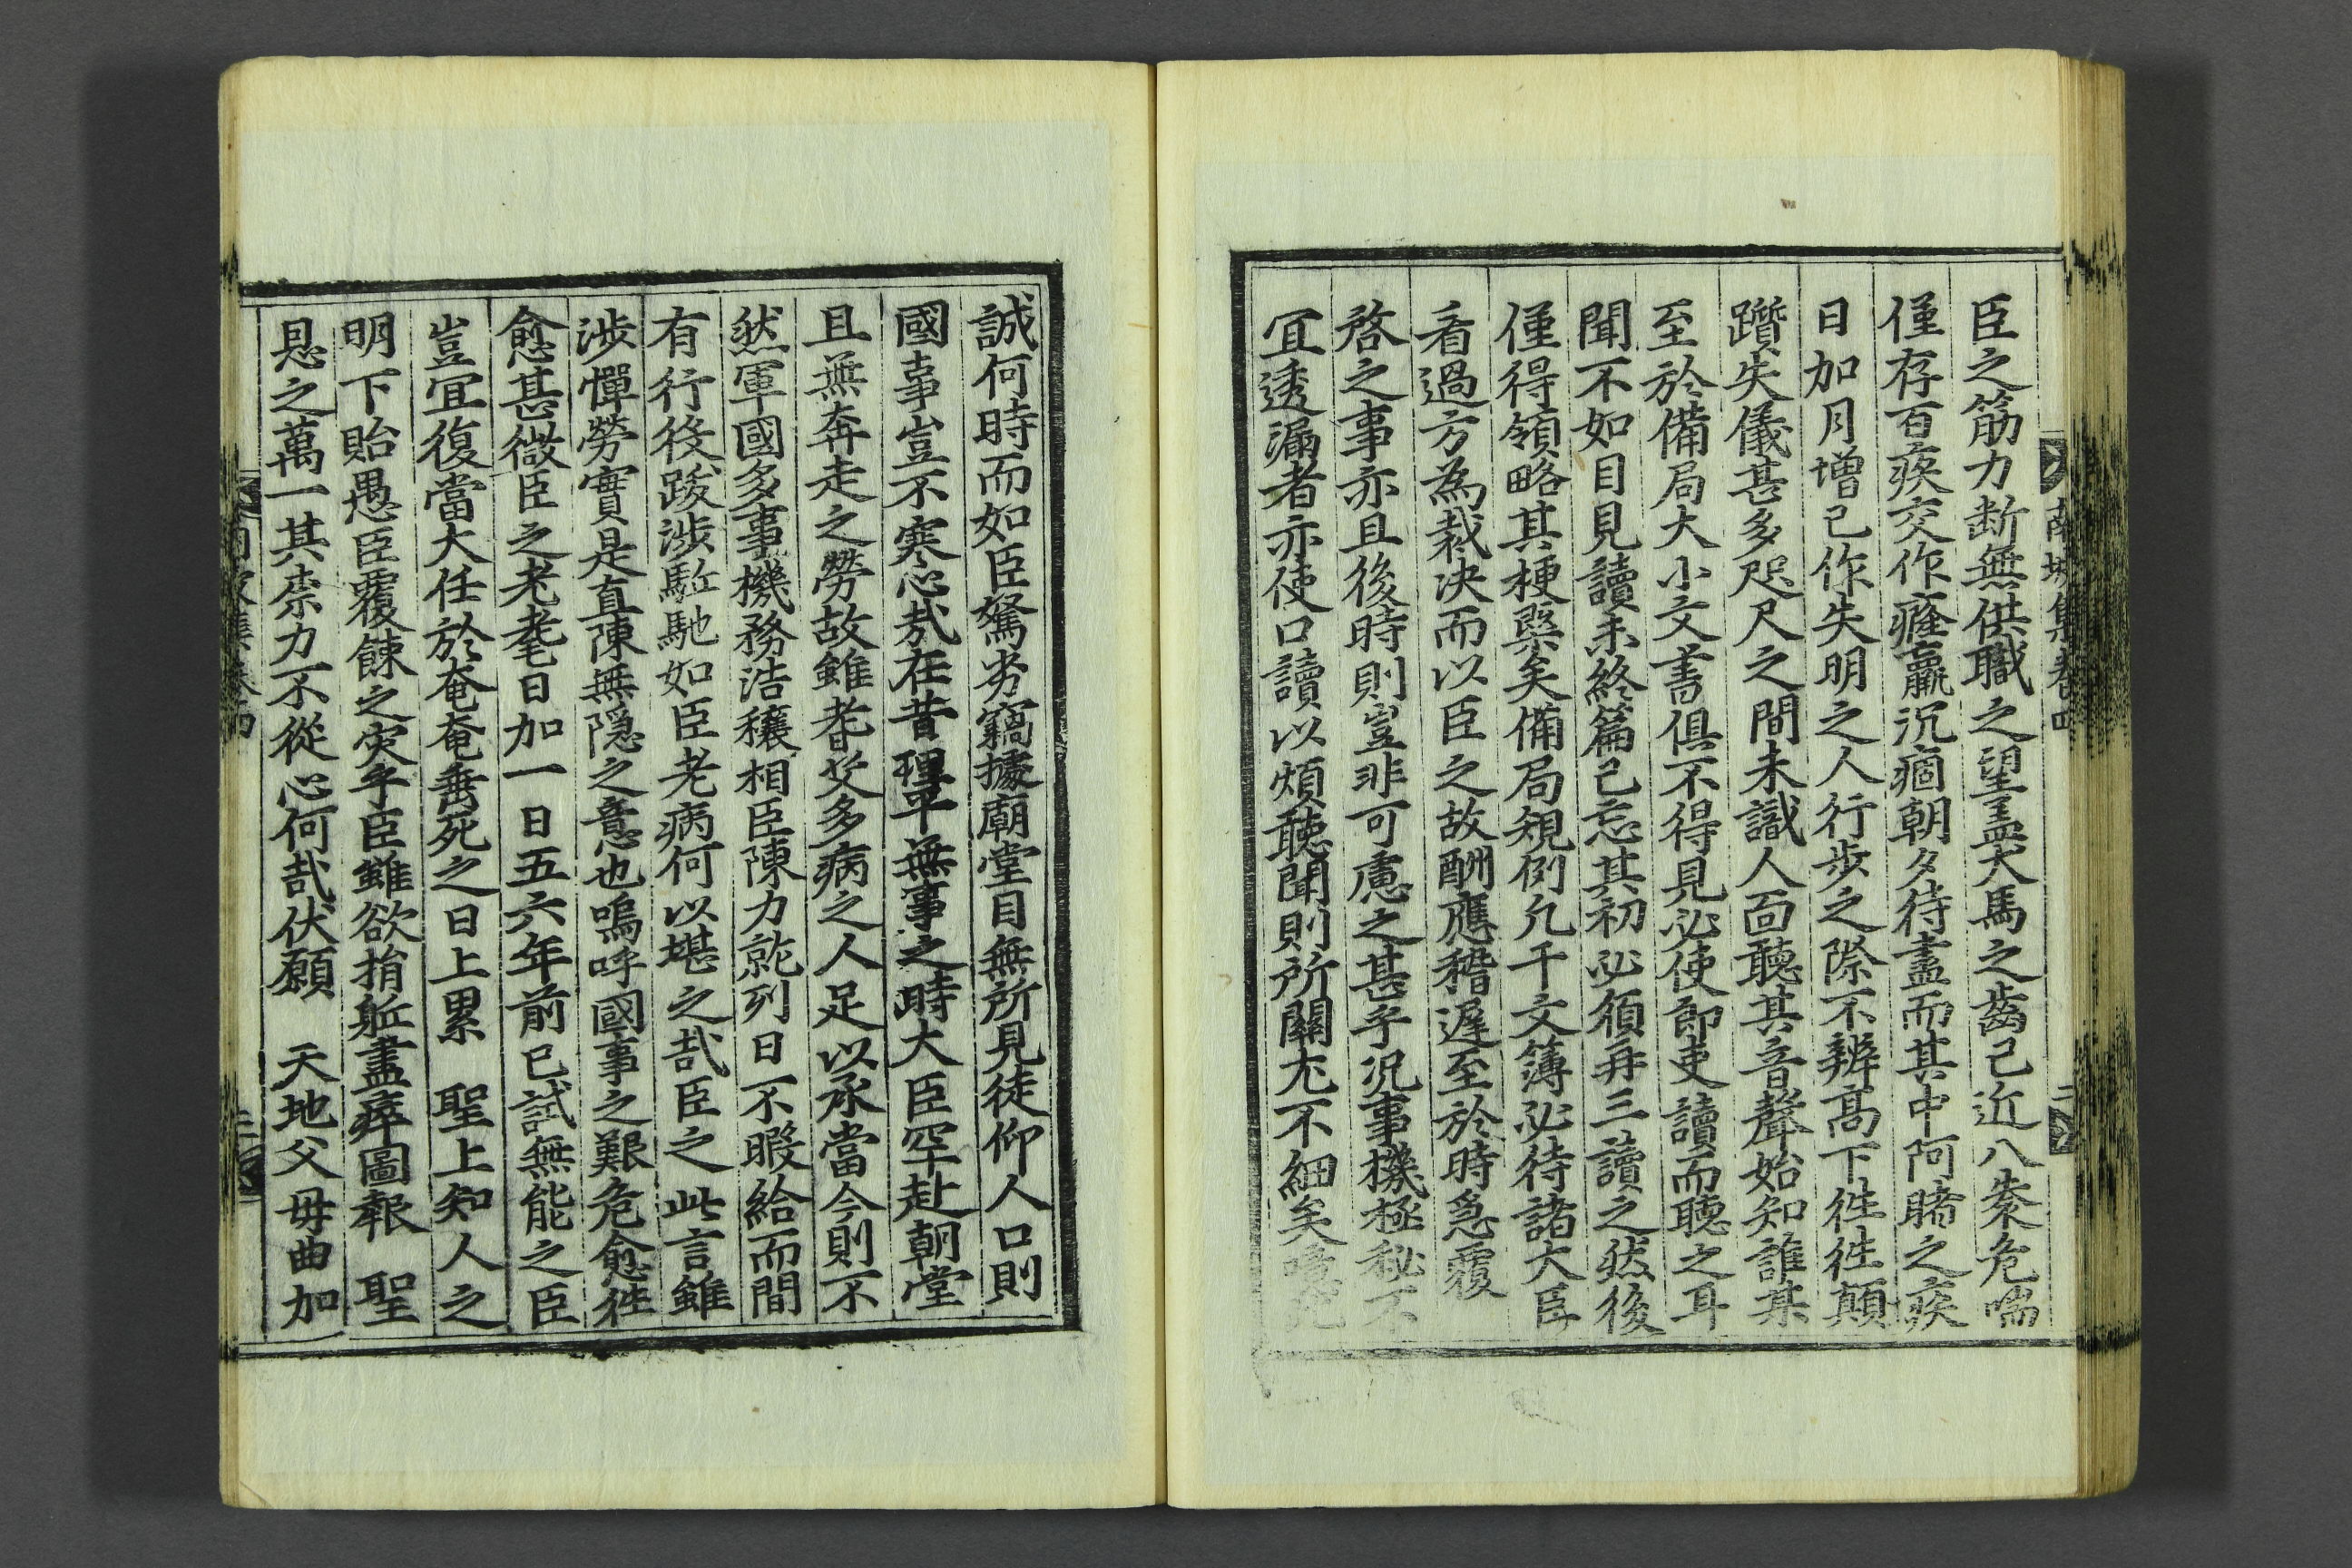 臣之筋力断無供職之望盖犬馬之齒已近八袠危喘
僅存百疾交作癃羸沉痼朝夕待盡而其中阿睹之疾
日加月增已作失明之人行步之際不辨髙下徃徃顛
躓失儀甚多咫尺之間未識人面聽其音聲始知誰某
至於備局大小文書俱不得見必使郎吏讀而聽之耳
聞不如目見讀未終篇已忘其初必須再三讀之然後
僅得領略其梗槩矣備局規例凡干文簿必待諸大臣
看過方為裁决而以臣之故酬應稽遲至於時急覆
啓之事亦且後時則豈非可慮之甚乎况事機極秘不
冝透漏者亦使口讀以煩聽聞則所關尤不細矣
誠何時而如臣駑劣竊據廟堂目無所見徒仰人口則
國事豈不寒心㦲在昔理平無事之時大臣罕赴朝堂
且無奔走之勞故雖耆艾多病之人足以承當今則不
然軍國多事機務浩穰相臣陳力就列日不暇給而間
有行役跋涉駈馳如臣老病何以堪之㦲臣之此言雖
涉憚勞實是直陳無隠之意也嗚呼國事之艱危愈徃
愈甚微臣之老耄日加一日五六年前已試無能之臣
豈冝復當大任於奄奄垂死之日上累 聖上知人之
明下貽愚臣覆餗之灾乎臣雖欲捐軀盡瘁圖報 聖
恩之萬一其柰力不從心何㦲伏願 天地父母曲加